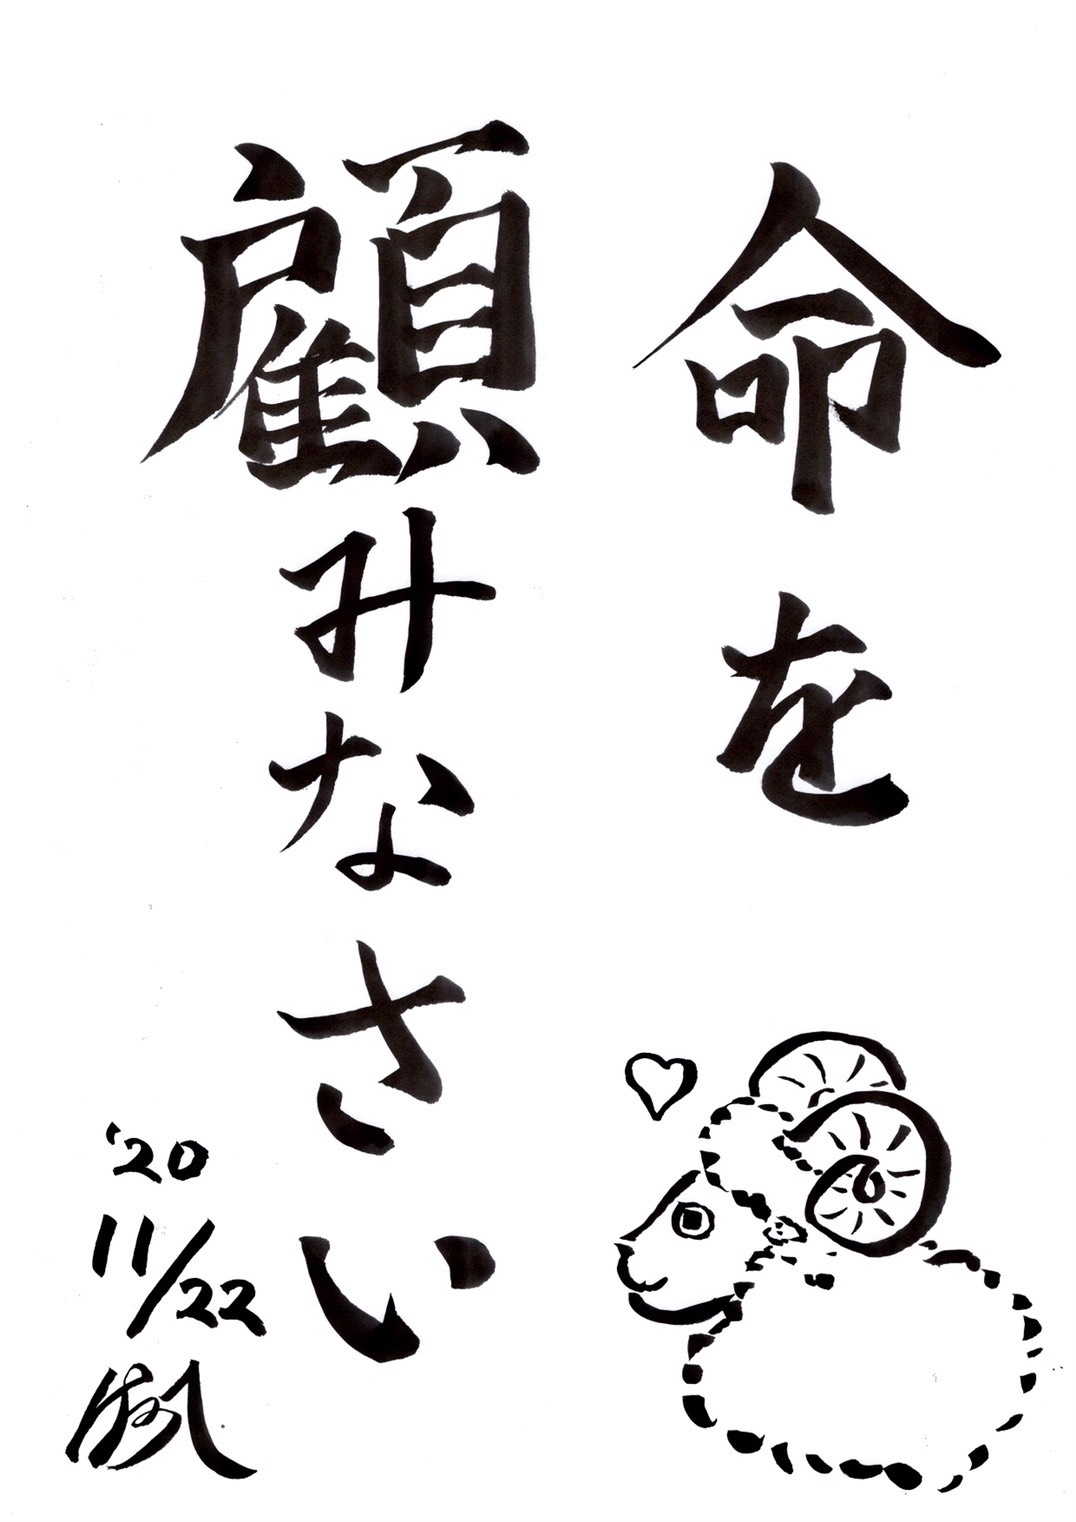 命を
顧みなさい
'20
11/22